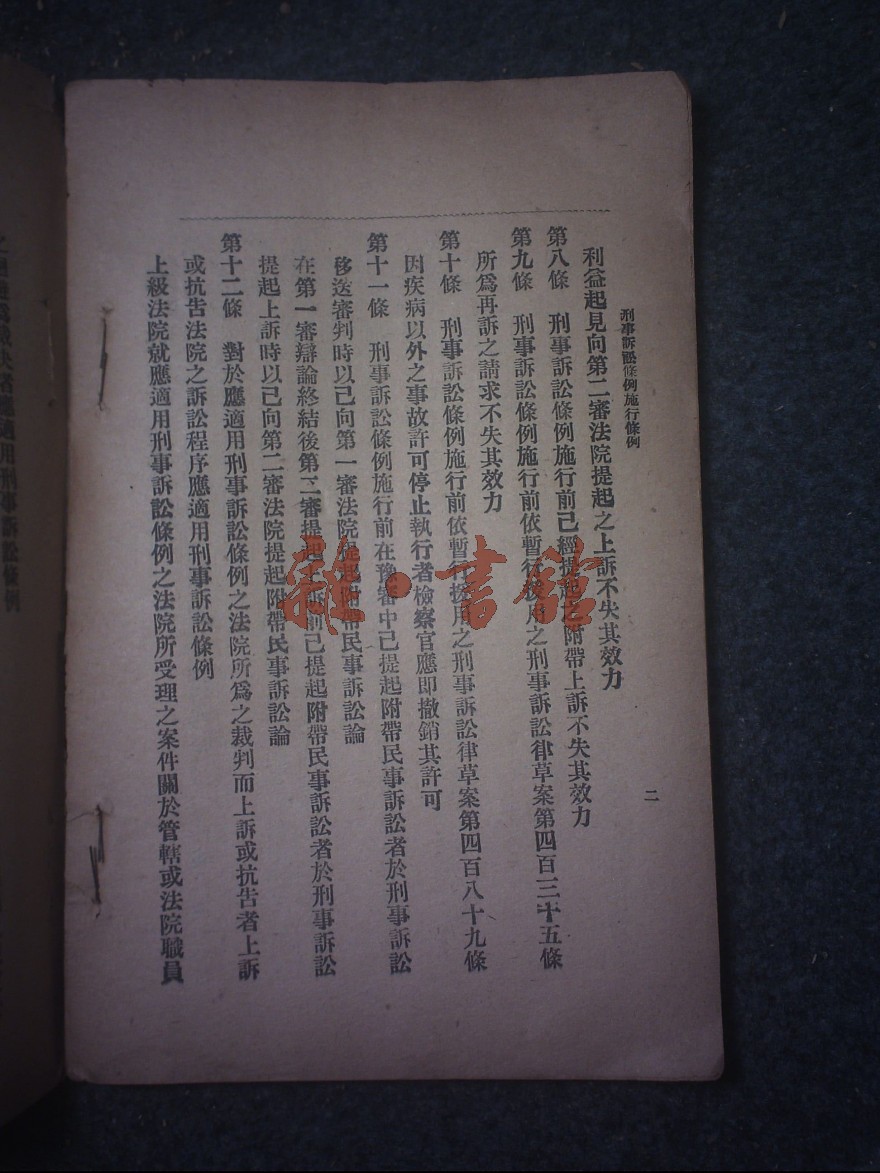 刑事訴訟條例施行條例
二
利益起見向第二審法院提起之上訴不失其效力
第八條　刑事訴訟條例施行前已經提起之附帶上訴不失其效力
第九條　刑事訴訟條例施行前依暫行援用之刑事訴訟律草案第四百三十五條
所爲再訴之請求不失其效力
第十條　刑事訴訟條例施行前依暫行援用之刑事訴訟律草案第四百八十九條
因疾病以外之事故許可停止執行者檢察官應即撤銷其許可
第十一條　刑事訴訟條例施行前在豫審中已提起附帶民事訴訟者於刑事訴訟
移送審判時以已向第一審法院提起附帶民事訴訟論
在第一審辯論終結後第二審提起上訴前已提起附帶民事訴訟者於刑事訴訟
提起上訴時以已向第二審法院提起附帶民事訴訟論
第十二條　對於應適用刑事訴訟條例之法院所爲之裁判而上訴或抗告者上訴
或抗告法院之訴訟程序應適用刑事訴訟條例
上級法院就應適用刑事訴訟條例之法院所受理之案件關於管轄或法院職員
適用刑事訴訟條例
雜·書館